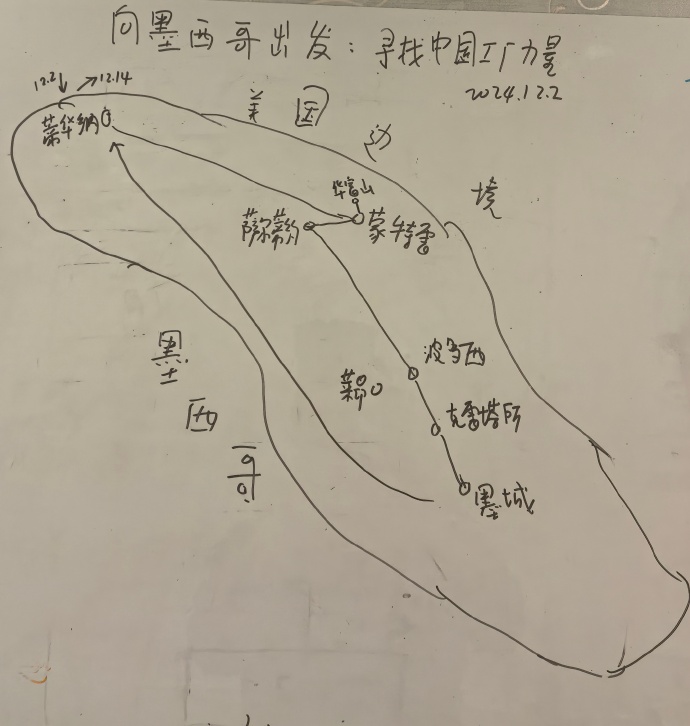 向墨西哥出发：寻找中国工厂力量
2024.12.2
12.2 12.14
美国边境
蒂华纳
华富山
萨尔蒂约
蒙特雷
墨西哥
波多西
莱昂
克雷塔所
墨城